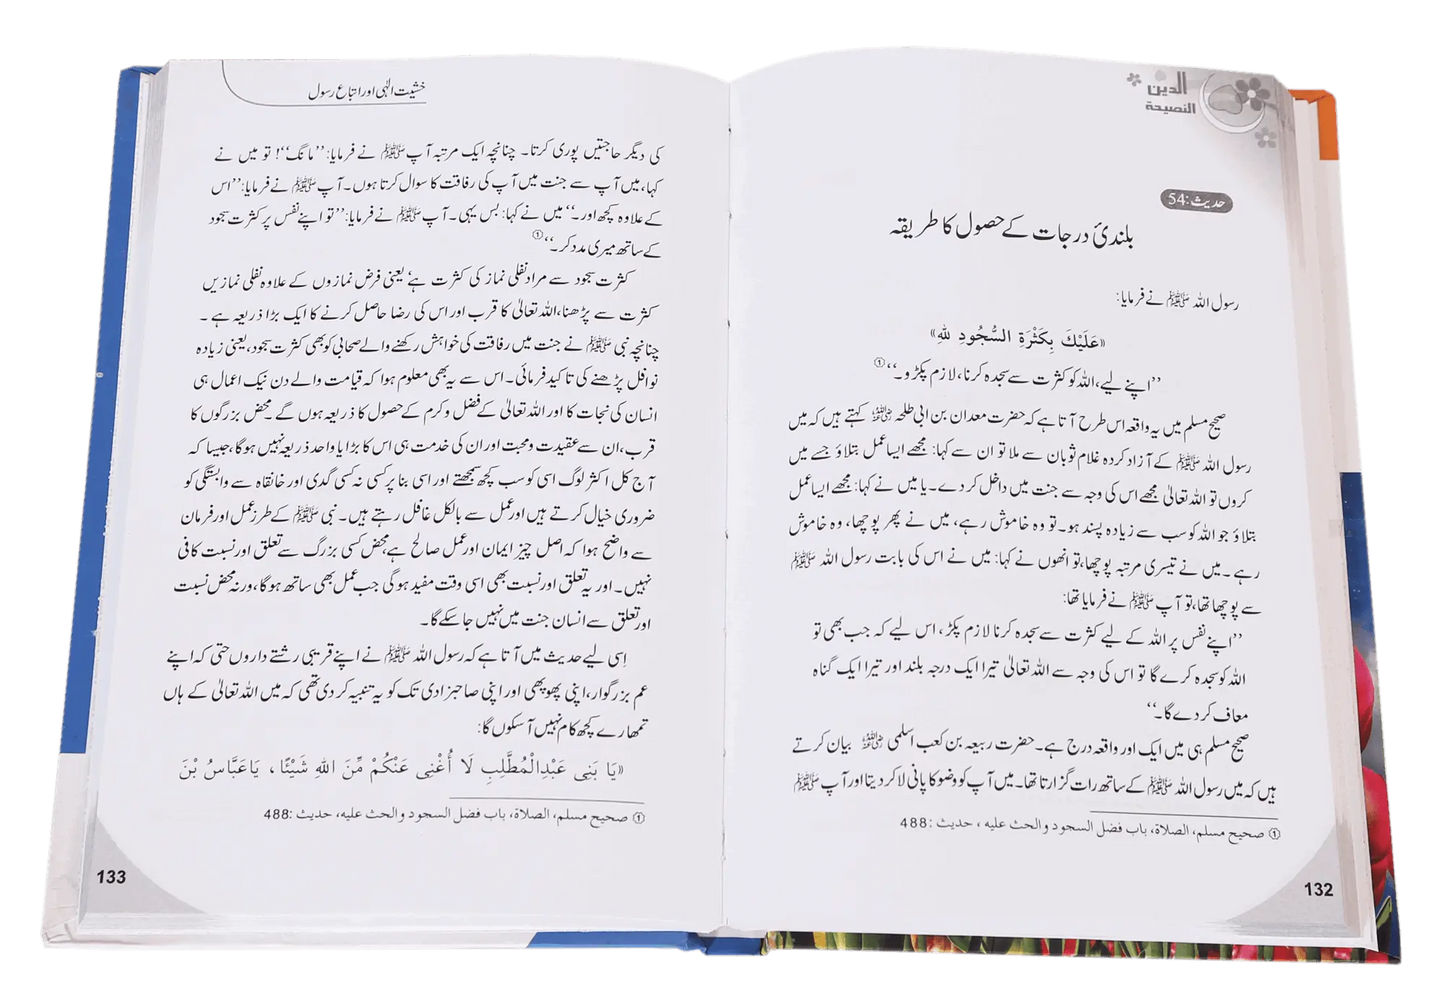 الدین
النصیحة
حدیث:54
بلندیٔ درجات کے حصول کا طریقہ
رسول اللہ ﷺ نے فرمایا:
«عَلَيْكَ بِكَثْرَةِ السُّجُودِ لِلّٰهِ»
’’اپنے لیے، اللہ کو کثرت سے سجدہ کرنا، لازم پکڑو۔‘‘①
صحیح مسلم میں یہ واقعہ اس طرح آتا ہے کہ حضرت معدان بن ابی طلحہ ؓ کہتے ہیں کہ میں
رسول اللہ ﷺ کے آزاد کردہ غلام ثوبان سے ملا تو ان سے کہا: مجھے ایسا عمل بتلاؤ جسے میں
کروں تو اللہ تعالیٰ مجھے اس کی وجہ سے جنت میں داخل کر دے۔ یا میں نے کہا: مجھے ایسا عمل
بتلاؤ جو اللہ کو سب سے زیادہ پسند ہو۔ تو وہ خاموش رہے، میں نے پھر پوچھا، وہ خاموش
رہے۔ میں نے تیسری مرتبہ پوچھا، تو انھوں نے کہا: میں نے اس کی بابت رسول اللہ ﷺ
سے پوچھا تھا، تو آپ ﷺ نے فرمایا تھا:
’’اپنے نفس پر اللہ کے لیے کثرت سے سجدہ کرنا لازم پکڑ، اس لیے کہ جب بھی تو
اللہ کو سجدہ کرے گا تو اس کی وجہ سے اللہ تعالیٰ تیرا ایک درجہ بلند اور تیرا ایک گناہ
معاف کر دے گا۔‘‘
صحیح مسلم ہی میں ایک اور واقعہ درج ہے۔ حضرت ربیعہ بن کعب اسلمی ؓ بیان کرتے
ہیں کہ میں رسول اللہ ﷺ کے ساتھ رات گزارتا تھا۔ میں آپ کو وضو کا پانی لا کر دیتا اور آپ ﷺ
① صحیح مسلم، الصلاة، باب فضل السجود والحث علیه، حدیث: 488
132
خشیت الٰہی اور اتباع رسول
کی دیگر حاجتیں پوری کرتا۔ چنانچہ ایک مرتبہ آپ ﷺ نے فرمایا: ’’مانگ‘‘! تو میں نے
کہا، میں آپ سے جنت میں آپ کی رفاقت کا سوال کرتا ہوں۔ آپ ﷺ نے فرمایا: ’’اس
کے علاوہ کچھ اور۔‘‘ میں نے کہا: بس یہی۔ آپ ﷺ نے فرمایا: ’’تو اپنے نفس پر کثرت سجود
کے ساتھ میری مدد کر۔‘‘①
کثرت سجود سے مراد نفلی نماز کی کثرت ہے، یعنی فرض نمازوں کے علاوہ نفلی نمازیں
کثرت سے پڑھنا، اللہ تعالیٰ کا قرب اور اس کی رضا حاصل کرنے کا ایک بڑا ذریعہ ہے۔
چنانچہ نبی ﷺ نے جنت میں رفاقت کی خواہش رکھنے والے صحابی کو بھی کثرت سجود، یعنی زیادہ
نوافل پڑھنے کی تاکید فرمائی۔ اس سے یہ بھی معلوم ہوا کہ قیامت والے دن نیک اعمال ہی
انسان کی نجات کا اور اللہ تعالیٰ کے فضل و کرم کے حصول کا ذریعہ ہوں گے۔ محض بزرگوں کا
قرب، ان سے عقیدت و محبت اور ان کی خدمت ہی اس کا بڑا یا واحد ذریعہ نہیں ہوگا، جیسا کہ
آج کل اکثر لوگ اسی کو سب کچھ سمجھتے اور اسی بنا پر کسی نہ کسی گدی اور خانقاہ سے وابستگی کو
ضروری خیال کرتے ہیں اور عمل سے بالکل غافل رہتے ہیں۔ نبی ﷺ کے طرز عمل اور فرمان
سے واضح ہوا کہ اصل چیز ایمان اور عمل صالح ہے، محض کسی بزرگ سے تعلق اور نسبت کافی
نہیں۔ اور یہ تعلق اور نسبت بھی اسی وقت مفید ہوگی جب عمل بھی ساتھ ہوگا، ورنہ محض نسبت
اور تعلق سے انسان جنت میں نہیں جا سکے گا۔
اِسی لیے حدیث میں آتا ہے کہ رسول اللہ ﷺ نے اپنے قریبی رشتے داروں حتی کہ اپنے
عم بزرگوار، اپنی پھوپھی اور اپنی صاحبزادی تک کو یہ تنبیہ کر دی تھی کہ میں اللہ تعالیٰ کے ہاں
تمھارے کچھ کام نہیں آ سکوں گا:
«يَا بَنِي عَبْدِالْمُطَّلِبِ لَا أُغْنِي عَنْكُمْ مِّنَ اللّٰهِ شَيْئًا، يَاعَبَّاسُ بْنَ
① صحیح مسلم، الصلاة، باب فضل السجود والحث علیه، حدیث: 488
133